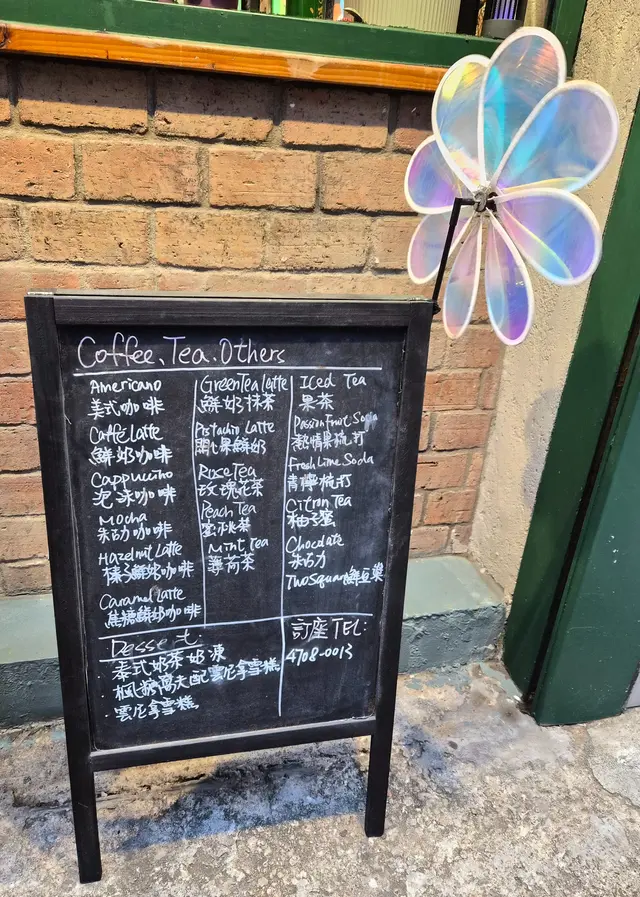 Coffee、Tea、Others
Americano
美式咖啡
Caffé Latte
鮮奶咖啡
Cappucino
泡沫咖啡
Mocha
朱古力咖啡
Hazelnut Latte
榛子鮮奶咖啡
Caramel Latte
焦糖鮮奶咖啡
Green Tea Latte
鮮奶抹茶
Pistachio Latte
開心果鮮奶
Rose Tea
玫瑰花茶
Peach Tea
蜜桃茶
Mint Tea
薄荷茶
Iced Tea
果茶
Passion Fruit Soda
熱情果梳打
Fresh Lime Soda
青檸梳打
Citron Tea
柚子蜜
Chocolate
朱古力
鮮豆漿
Desse t:
泰式奶茶奶凍
楓糖窩夫配雲尼拿雪糕
雲尼拿雪糕
訂座TEL:
4708-0013